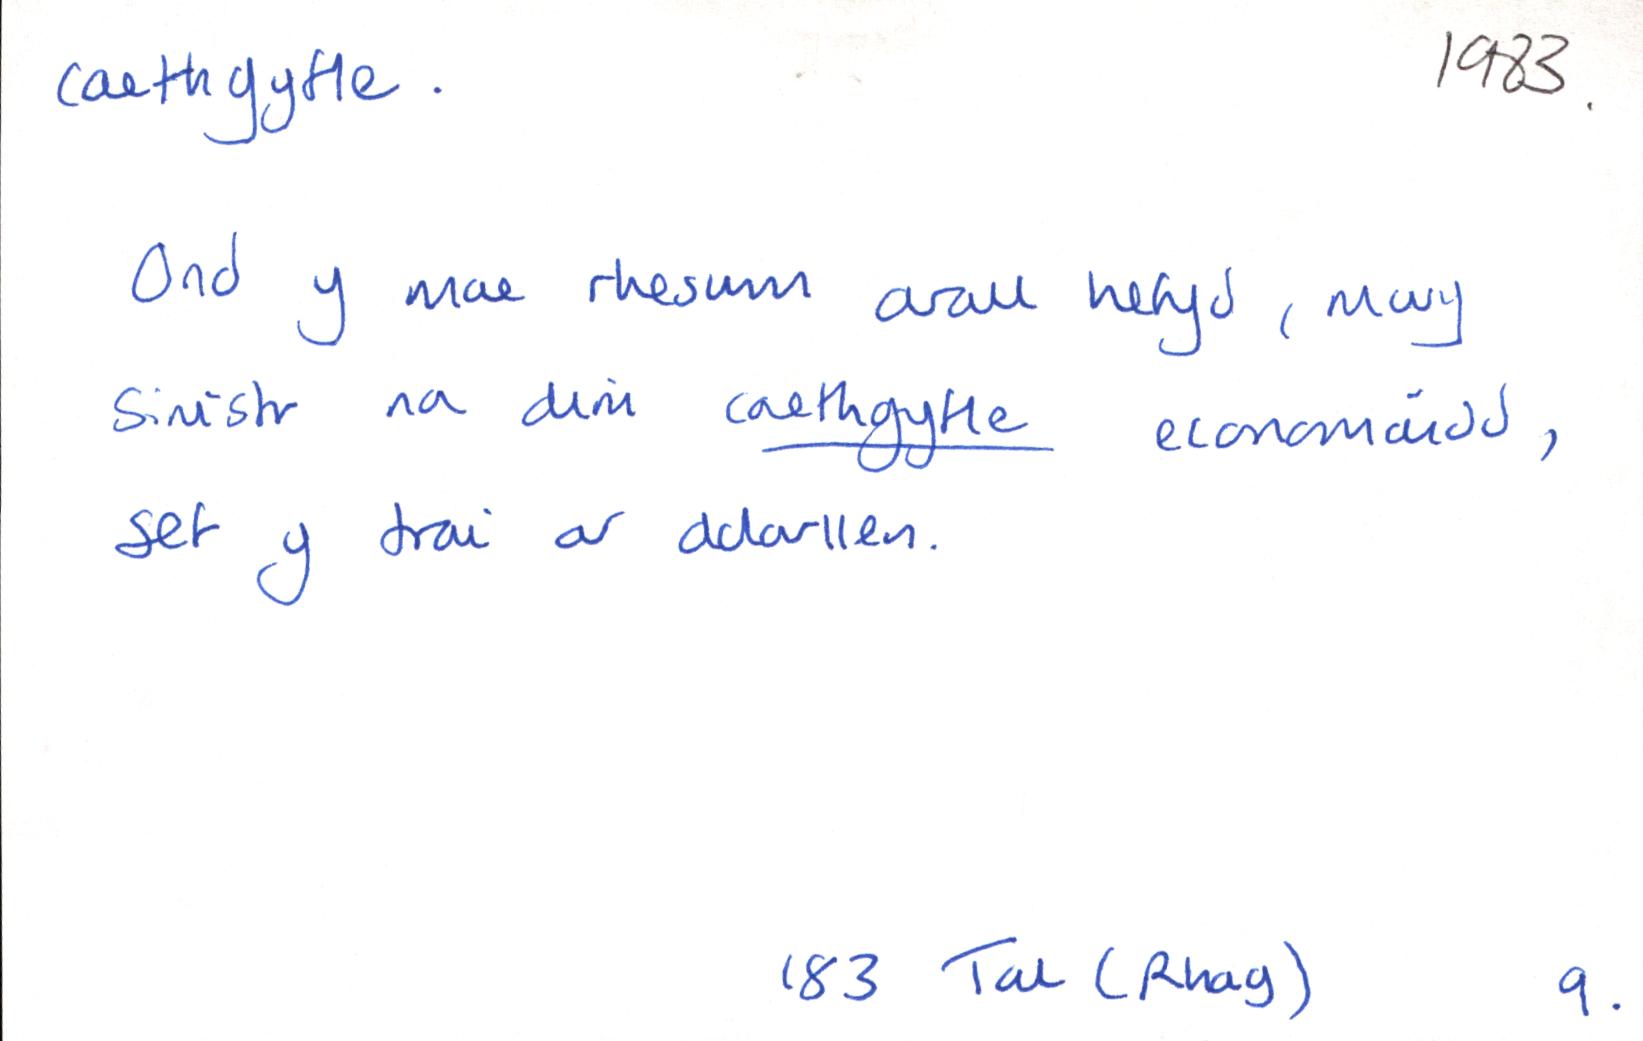 caethgyfle. 1983.
Ond y mae rheswm arall hefyd, mwy
sinistr na dim caethgyfle economaidd,
sef y trai ar ddarllen.
'83 Tal (Rhag) 9.